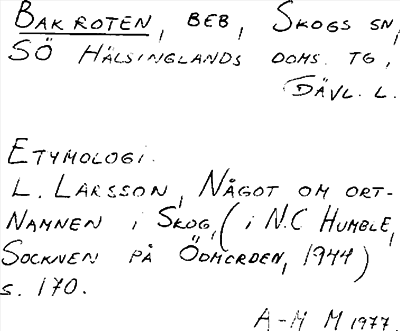 BAKROTEN, BEB, SKOGS SN,
SÖ HÄLSINGLANDS DOMS. TG,
GÄVL. L.
ETYMOLOGI.
L. LARSSON, NÅGOT OM ORT-
NAMNEN I SKOG, (I N.C HUMBLE,
SOCKNEN PÅ ÖDMORDEN, 1944)
S. 170.
A-M M 1977.